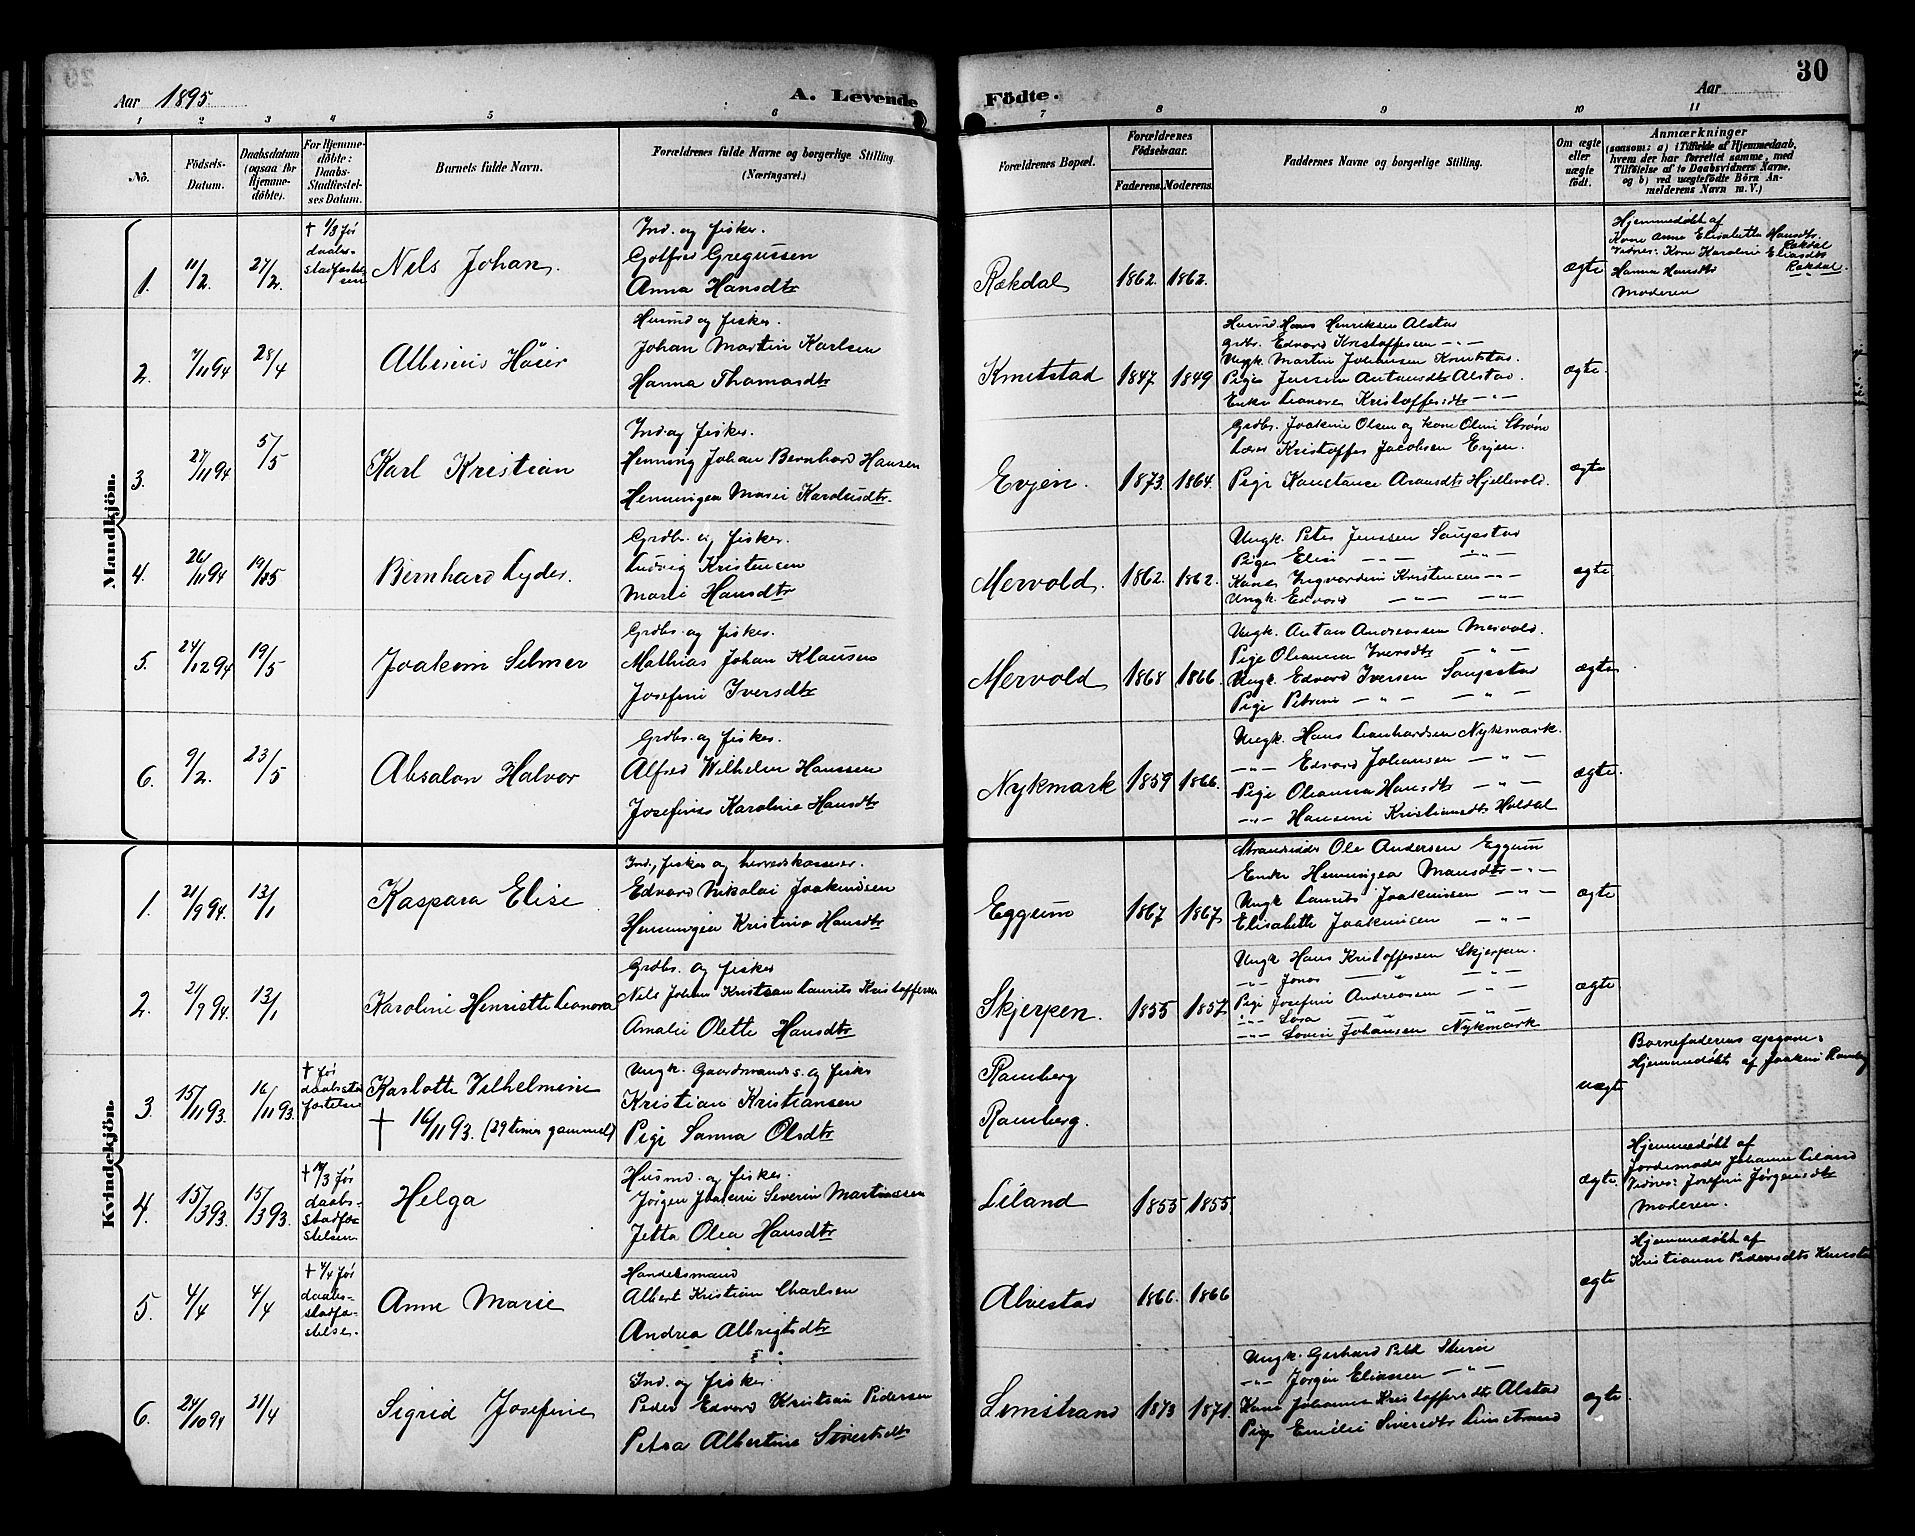 Aar 1895. A. Levende
Födte. Aar 30
1 2 3 4 5 6 7 8 9 10 11
No.
Födsels-Datum.
Daabsdatum (ogsaa for Hjemme-döbte).
For Hjemme-döbte: Daabs-Stadfæstel-ses Datum.
Barnets fulde Navn.
Forældrenes fulde Navne og borgerlige Stilling.
(Næringsvei.)
Forældrenes Bopæl.
Forældrenes Födselsaar.
Faderens. Moderens.
Faddernes Navne og borgerlige Stilling.
Om ægte eller uægte födt.
Anmærkninger
(saasom: a) i Tilfælde af Hjemmedaab,
hvem der har forrettet samme, med
Tilföielse af to Daabsvidners Navne,
og b) ved uægtefödte Börn An-
melderens Navn m. V.)
Mandkjön.
1. 11/2. 27/2. † 1/3 før daabs-stadfæstelsen
Nils Johan.
Ind. og fisker.
Gotfred Gregussen
Anna Hansdtr
Rækdal 1862. 1862. ægte
Hjemmedøbt af
Kone Anne Elisabeth Hansdtr. Rækdal
Vidner: Kone Karoline Eliasdtr Rækdal.
Hanna Hansdtr
Moderen
2. 7/11 94 28/4 Albinius Høier
Husmd og fisker.
Johan Martin Karlsen
Hanna Thomasdtr
Knutstad 1847 1849
Husmd. Hans Henriksen Alstad
Grdbr. Edvard Kristoffersen -"-
Ungk. Martin Johansen Knutstad.
Pige Jensine Antonsdtr Alstad.
Enke Leonore Kristoffersdtr -"-
ægte.
3. 27/11 94 5/5 Karl Kristian
Ind. og fisker.
Henning Johan Bernhard Hansen
Henningea Marie Kardusdtr.
Evjen. 1873. 1864.
Grdbr. Joakim Olsen og kone Oline Strøm
Kristoffer Jacobsen Evjen.
Pige Konstance Aronsdtr Hjellevold.
ægte
4. 26/11 94 19/5 Bernhard Lyder.
Grdbr. og fisker.
Ludvig Kristensen
Marie Hansdtr
Mervold. 1862. 1862.
Ungk. Peter Jenssen Saupstad
Pige Elise -"- -"-
Kone Ingvardine Kristensen -"-
Ungk. Edvard -"- -"-
ægte
5. 24/12 94 19/5 Joakim Selmer
Grdbr. og fisker.
Mathias Johan Klausen
Josefine Iversdtr
Mervold 1868 1866.
Ungk. Anton Andreassen Mervold.
Pige Oleanna Iversdtr -"-
Ungk. Edvard Iversen Saupstad
Pige Petrine -"- -"-
ægte
6. 9/2. 23/5 Absalon Halvor
Grdbr. og fisker.
Alfred Wilhelm Hanssen
Josefine Karoline Hansdtr
Nykmark 1859 1866.
Ungk. Hans Leonhardsen Nykmark.
-"- Edvard Johansen -"-
Pige Oleanna Hansdtr -"-
-"- Hansine Kristiansdtr Holdal
ægte.
Kvindekjön.
1. 21/9 94. 13/1 Kaspara Elise
Ind., fisker og herredskasserer.
Edvard Nikolai Joakimsen
Henningea Kristine Hansdtr
Eggum 1867 1867
Strandsidder Ole Andersen Eggum
Enke Henningea Mansdtr -"-
Ungk Laurits Joakimsen -"-
Elisabeth Joakimsen -"-
ægte
2. 21/9 94. 13/1 Karoline Henriette Leonora
Grdbr. og fisker
Nils Johan Kristian Laurits Kristoffersen
Amalie Olette Hansdtr
Skjerpen. 1855 1857.
Ungk Hans Kristoffersen Skjerpen.
-"- Jonas -"- -"-
Pige Josefine Andreassen -"-
-"- Lova -"- -"-
-"- Lovise Johansen Nykmark
ægte
3. 15/11 93. 16/11 93. † før daabsstadfæstelse
Karlotte Vilhelmine
† 16/11 93. (29 timer gammel)
Ungk. Gaardmands s. og fisker
Kristian Kristiansen
Pige Sanna Olsdtr
Ramberg
Ramberg.
uægte
Barnefaderens opgave:
Hjemmedøbt af Joakim Ramberg
4. 15/3 93. 15/3 93. før daabs-stadfæ-stelsen
Helga
Husmd. og fisker.
Jørgen Joakim Severin Martinssen
Jetta Olea Hansdtr
Liland 1855 1855.
ægte.
Hjemmedøbt af
Jordemoder Johanne Liland
Vidner: Josefine Jørgensdtr
Moderen.
5. 4/4 4/4 † 4/4 før daabs-stadfæ-stelse.
Anne Marie
Handelsmand
Albert Kristian Charlsen
Andrea Albrigtsdtr
Alvestad 1866. 1866
ægte
Hjemmedøbt af
Kristianne Pedersdtr
6. 24/10 94 21/4 Sigrid Josefine
Ind. og fisker.
Peder Edvard Kristian Pedersen
Petra Albertine Sivertsdtr
Limstrand 1873 1871.
Ungk. Gerhard
-"- Jørgen Eliassen -"-
Kone Johanna Kristoffersdtr Alstad
Pige Emilie Siversdtr Limstrand
ægte.